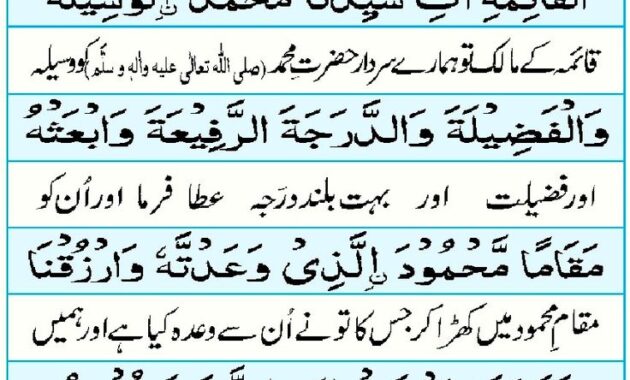 الْقَائِمَةِ اٰتِ سَيِّدَنَا مُحَمَّدَ نِ الْوَسِيْلَةَ
قائمہ کے مالک تو ہمارے سردار حضرت محمد (صلی اللہ تعالی علیہ والہٖ وسلّم) کو وسیلہ
وَالْفَضِيْلَةَ وَالدَّرَجَةَ الرَّفِيْعَةَ وَابْعَثْهُ
اور فضیلت اور بہت بلند درَجہ عطا فرما اور اُن کو
مَقَامًا مَّحْمُوْدَ نِ الَّذِىْ وَعَدْتَّهٗ وَارْزُقْنَا
مقامِ محمود میں کھڑا کر جس کا تو نے اُن سے وعدہ کیا ہے اور ہمیں